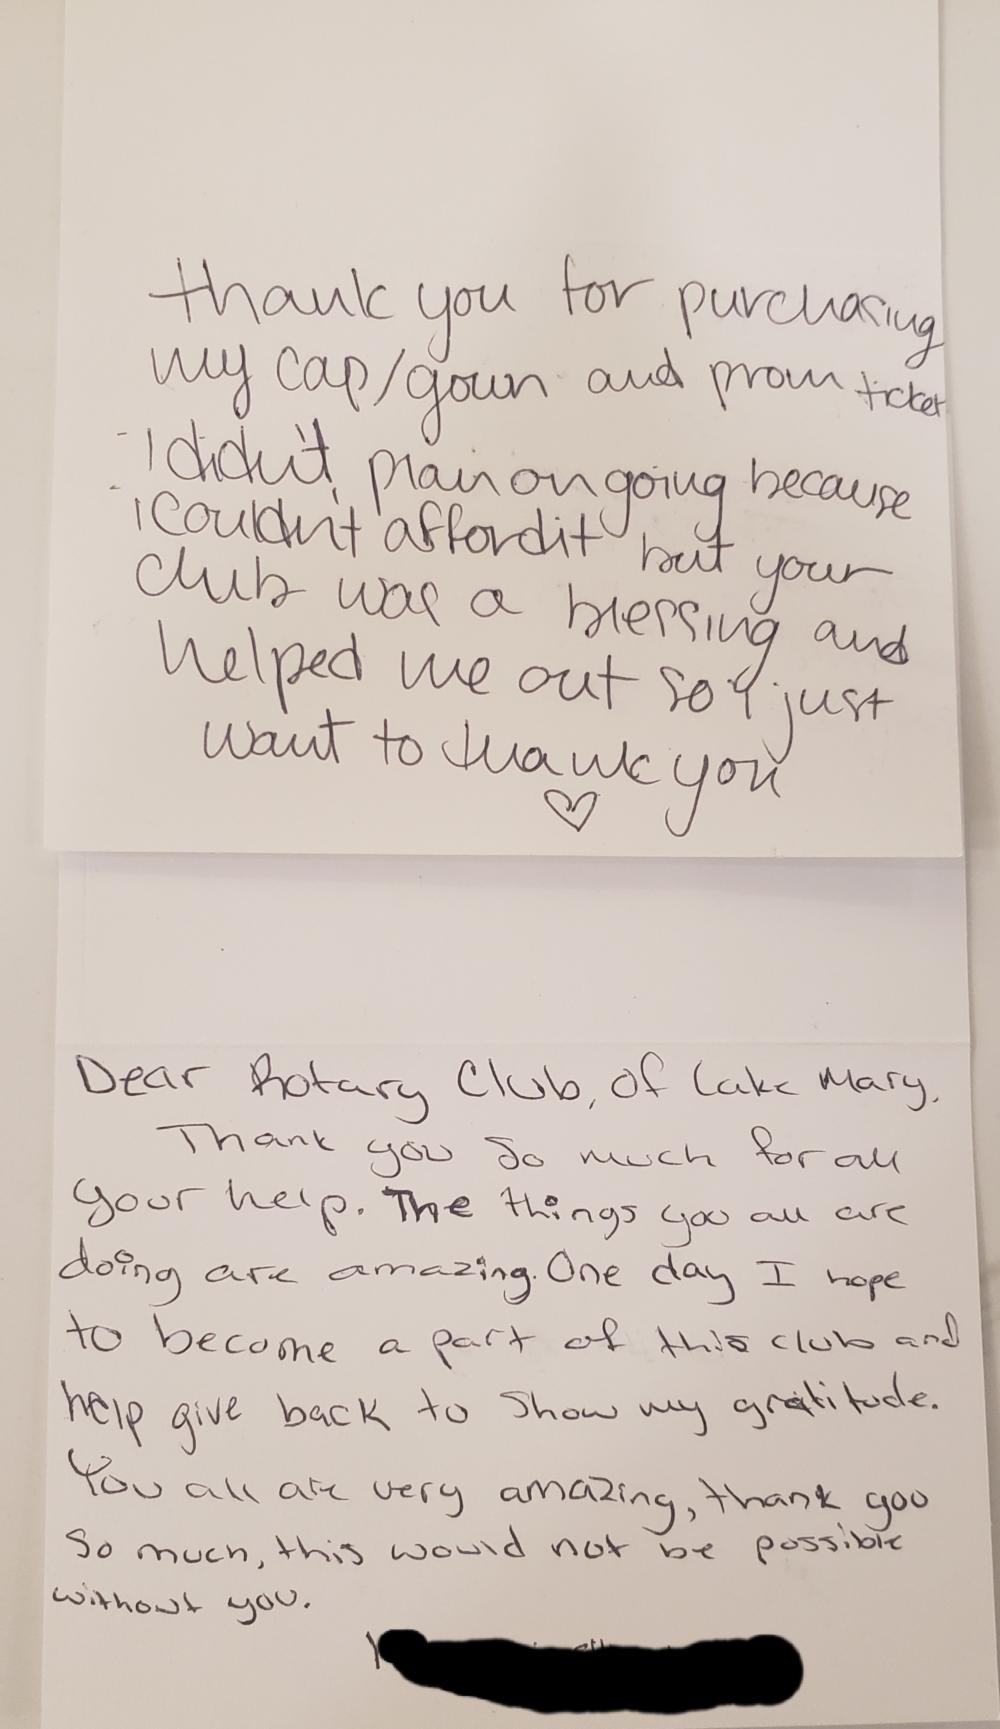 thank you for purchasing
my cap/gown and prom ticket
I didn't plain on going because
i couldn't afford it but your
club was a blessing and
helped me out so I just
want to thank you
♡
Dear Rotary Club, of Lake Mary,
Thank you so much for all
your help. The things you all are
doing are amazing. One day I hope
to become a part of this club and
help give back to show my gratitude.
You all are very amazing, thank you
so much, this would not be possible
without you.